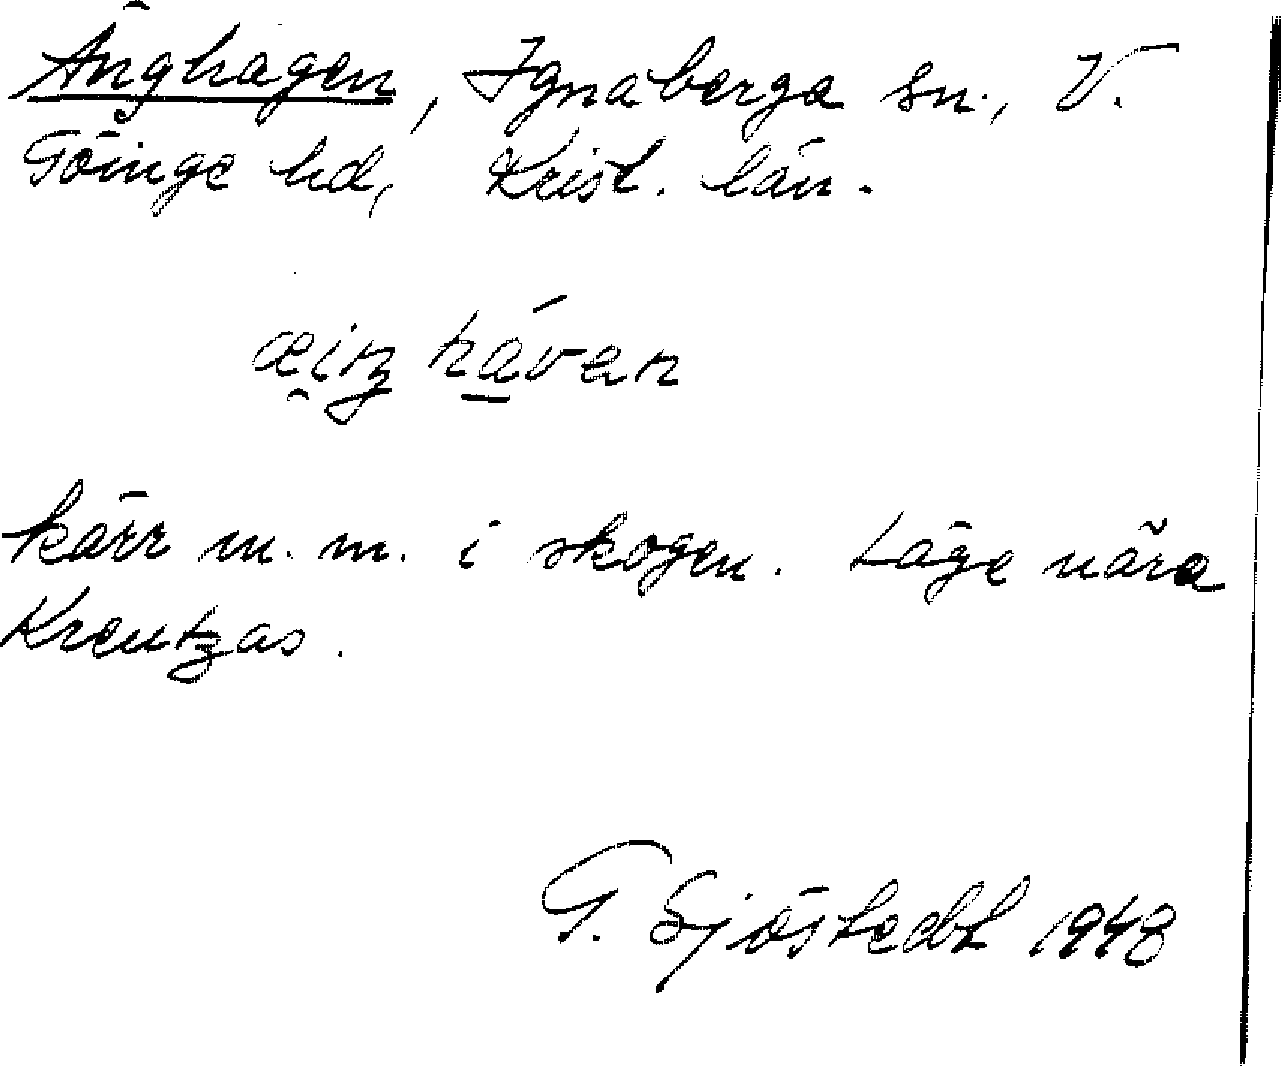 Änghagen, Ignaberga sn., V.
Göinge hd, Krist. län.
æi̯ŋ hávan
kärr m. m. i skogen. Läge nära
Kreutzas.
G. Sjöstedt 1948